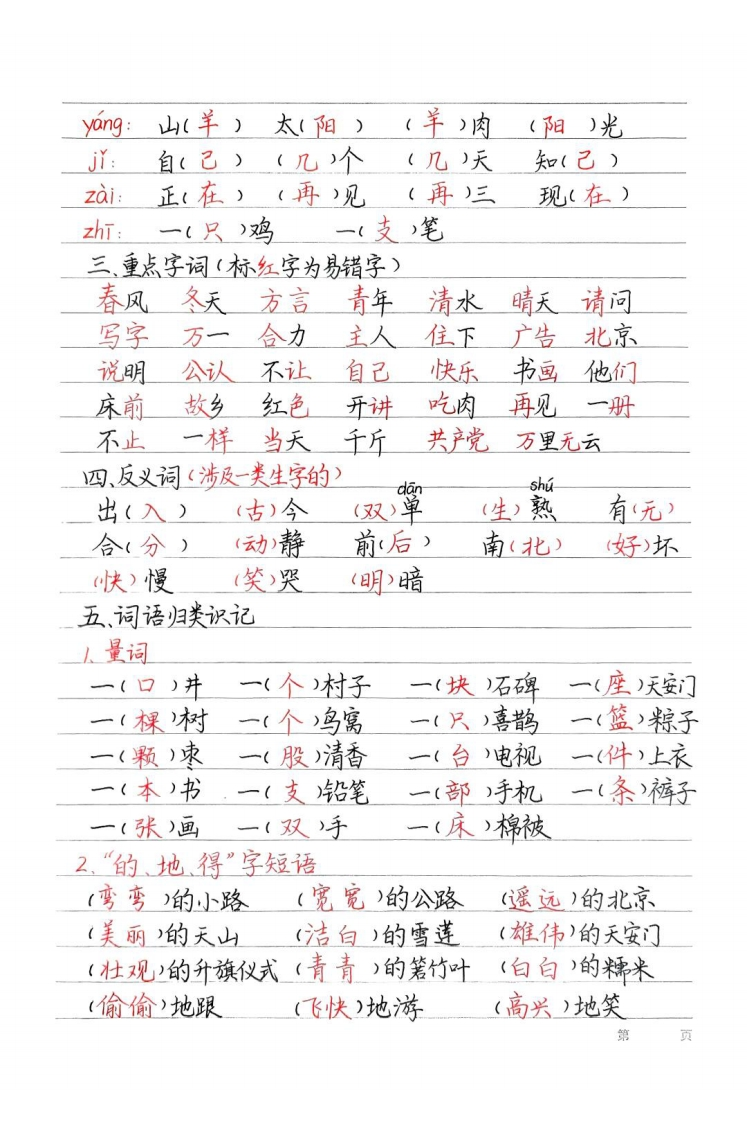 yáng: 山(羊) 太(阳) (羊)肉 (阳)光
jǐ: 自(己) (几)个 (几)天 知(己)
zài: 正(在) (再)见 (再)三 现(在)
zhī: 一(只)鸡 一(支)笔
三、重点字词(标红字为易错字)
春风 冬天 方言 青年 清水 晴天 请问
写字 万一 合力 主人 住下 广告 北京
说明 公认 不让 自己 快乐 书画 他们
床前 故乡 红色 开讲 吃肉 再见 一册
不止 一样 当天 千斤 共产党 万里无云
四、反义词(涉及一类生字的)
dān shú
出(入) (古)今 (双)单 (生)熟 有(无)
合(分) (动)静 前(后) 南(北) (好)坏
(快)慢 (笑)哭 (明)暗
五、词语归类识记
1.量词
一(口)井 一(个)村子 一(块)石碑 一(座)天安门
一(棵)树 一(个)鸟窝 一(只)喜鹊 一(篮)粽子
一(颗)枣 一(股)清香 一(台)电视 一(件)上衣
一(本)书 一(支)铅笔 一(部)手机 一(条)裤子
一(张)画 一(双)手 一(床)棉被
2、“的、地、得”字短语
(弯弯)的小路 (宽宽)的公路 (遥远)的北京
(美丽)的天山 (洁白)的雪莲 (雄伟)的天安门
(壮观)的升旗仪式 (青青)的箬竹叶 (白白)的糯米
(偷偷)地跟 (飞快)地游 (高兴)地笑
第 页